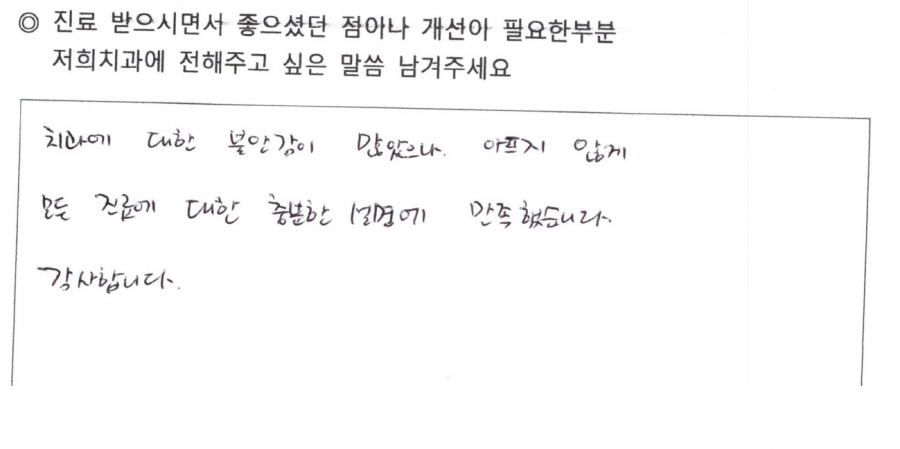 ◎ 진료 받으시면서 좋으셨던 점아나 개선아 필요한부분
저희치과에 전해주고 싶은 말씀 남겨주세요
치과에 대한 불안감이 많았으나. 아프지 않게
모든 진료에 대한 충분한 설명에 만족했습니다.
감사합니다.